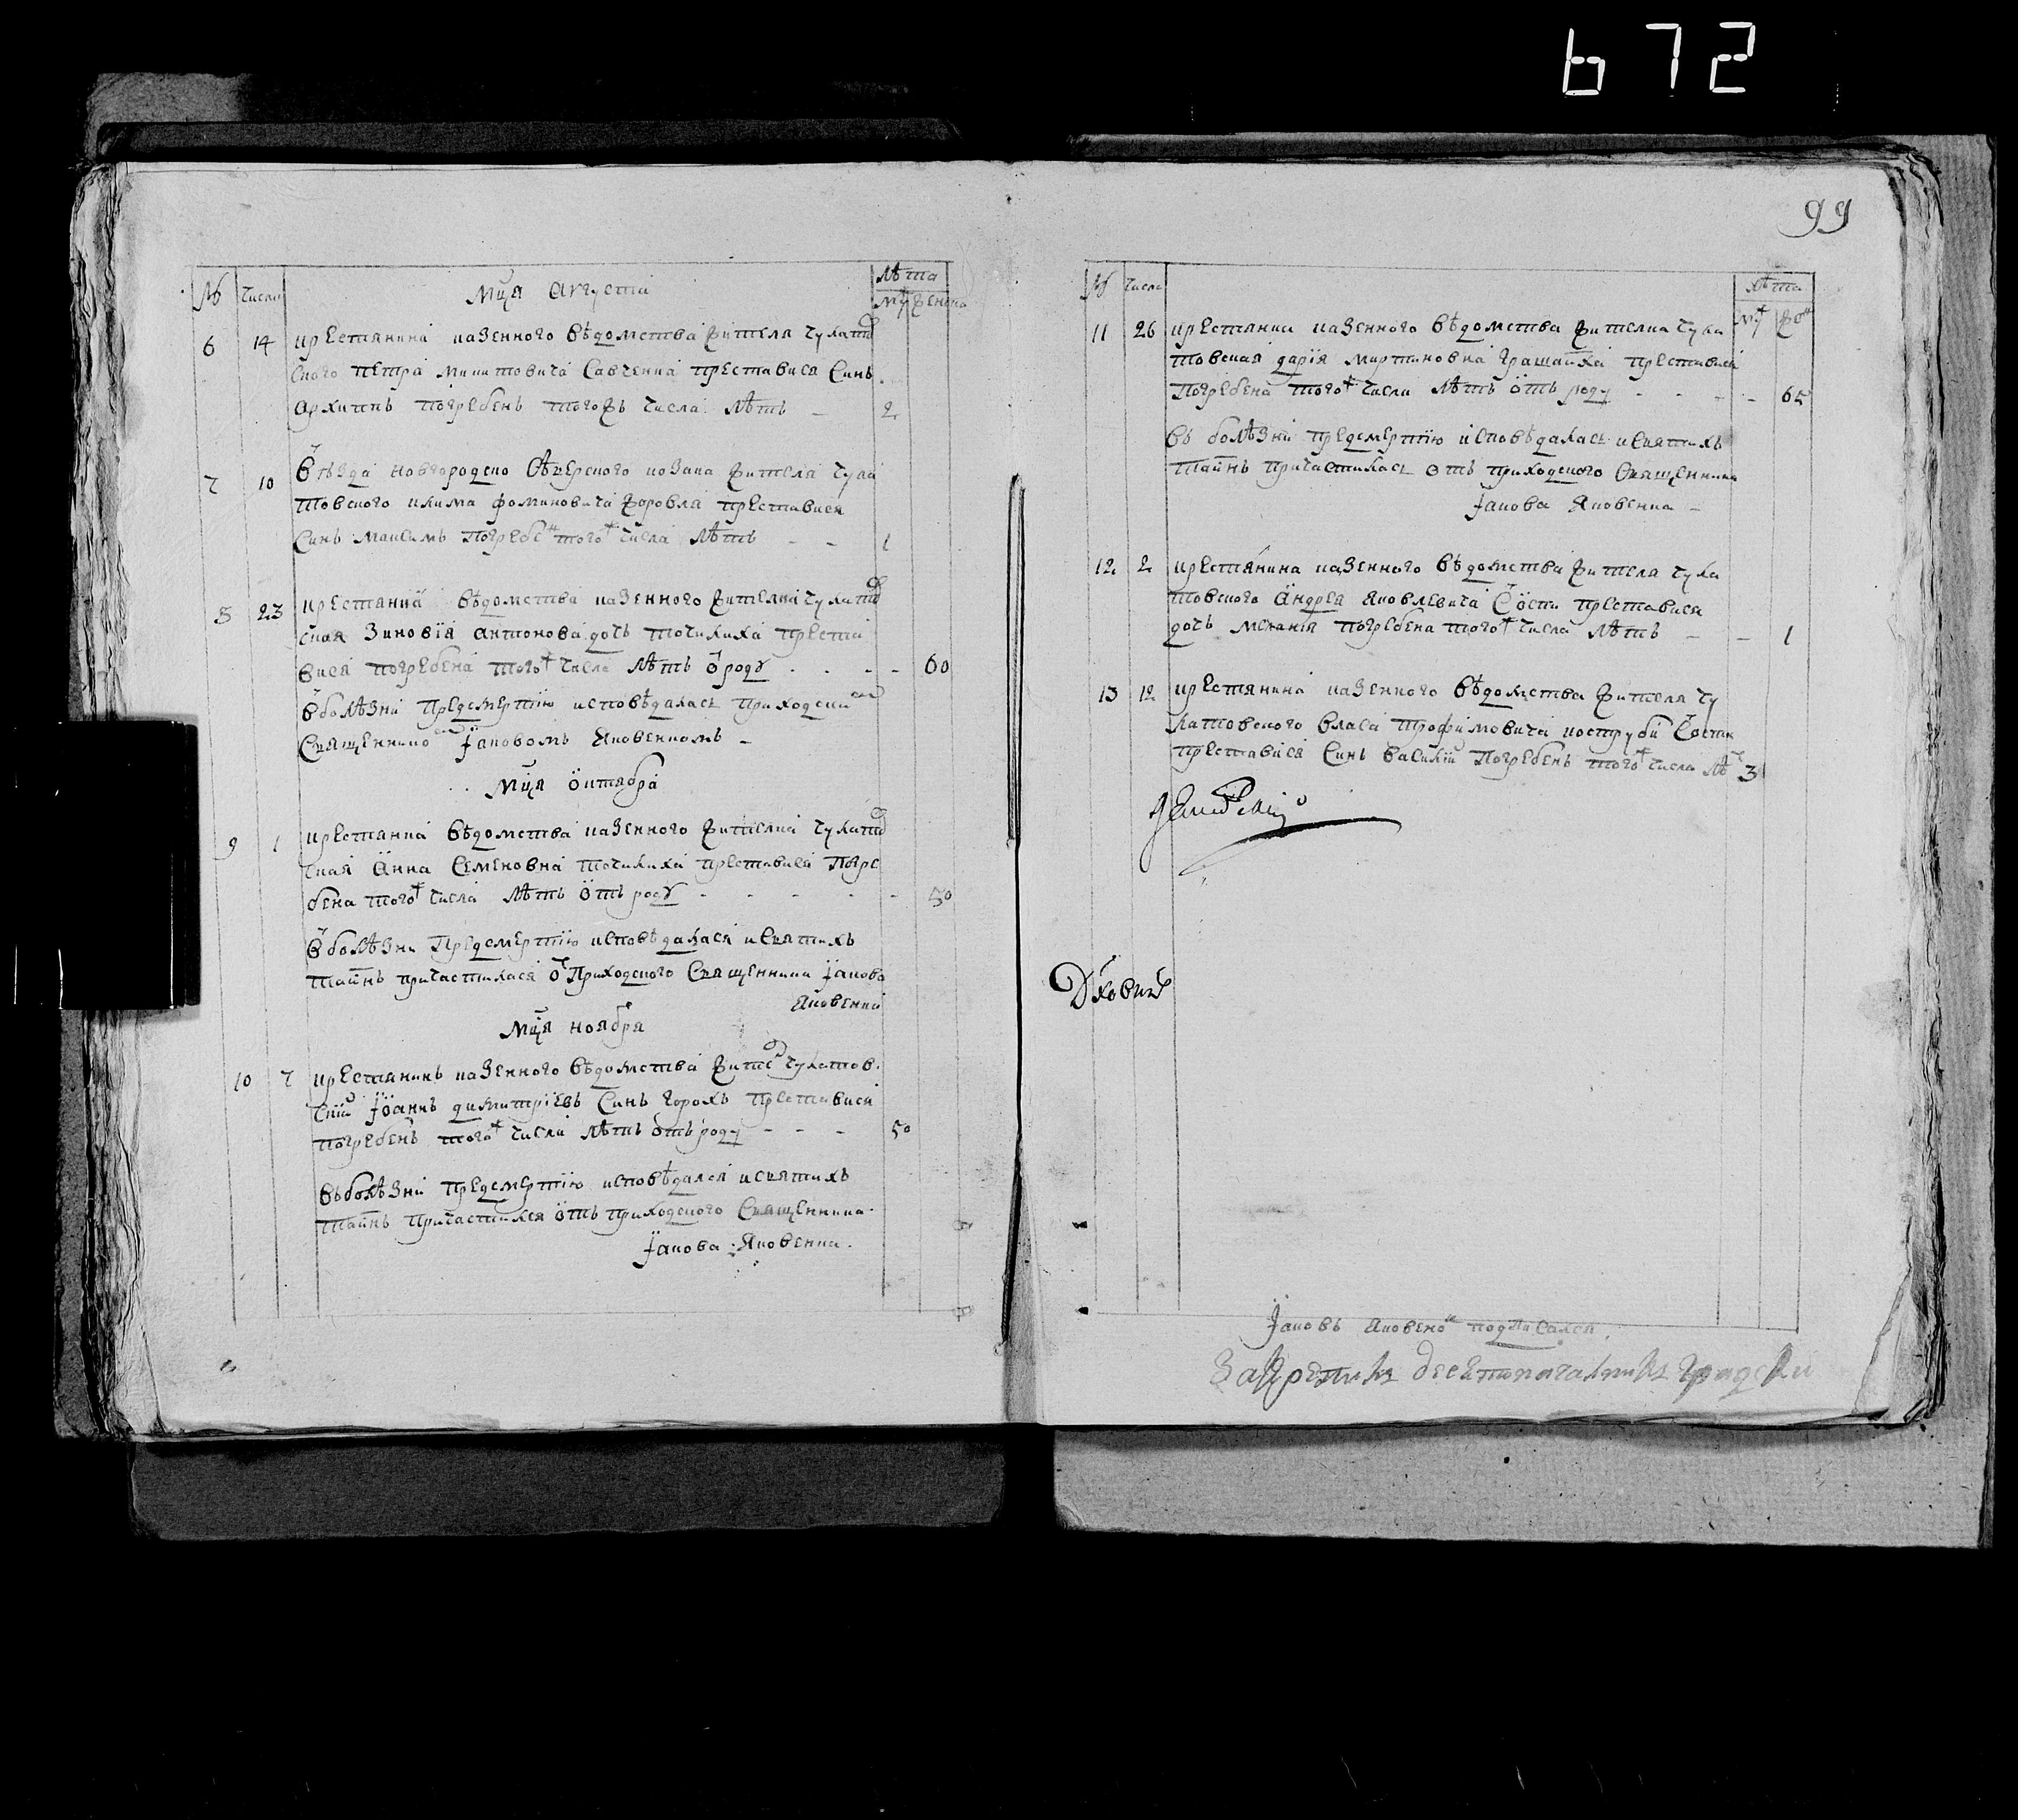 672
99
№ Числа Мца Августа Лѣта
Муж Женска
6 14 крестянина казенного вѣдомства жителя чулатов
ского Петра Никитовича Савченка преставися Синъ
Архипъ погребенъ тогожъ числа лѣтъ – 2
7 10 уѣзда новгородско сѣверского козака жителя Чула
товского якима фоминовича преставися
Синъ Максимъ погребен того ж числа лѣтъ – – 1
8 23 крестянка вѣдомства казенного жителка чулатов
ская Зиновія антонова дочь точилиха преста
вися погребена того ж числа лѣтъ о роду - - - 60
в болѣзни предсмертію исповѣдалась приходским
Священником Іаковомъ Яковенкомъ –
Мца октября
9 1 крестянка вѣдомства казенного жителка чулатов
ская Анна Семеновна точилиха преставися Погре
бена того ж числа лѣтъ отъ роду - - - - - 50
в болѣзни Предсмертію исповѣдалася и Святихъ
таинъ причастилася от Приходского Священника Іакова
Яковенка
Мца ноября
10 7 крестянинъ казенного вѣдомства жител чулатов
скій Іоаннъ димитріевъ Синъ горохъ преставися
погребенъ того ж числа лѣтъ отъ роду - - - 50
въ болѣзни предсмертію исповѣдался и святихъ
таинъ причастился отъ приходского Священника
Іакова Яковенка.
№ Числа Лѣта
Муж Жен
11 26 крестянка казенного вѣдомства жителка чула
товская дарія мартиновна преставися
Погребена того ж числа лѣтъ отъ роду - - - - 65
въ болѣзни предсмертію исповѣдалась и Святихъ
таинъ причастилась отъ приходского Священника
Іакова Яковенка –
12 2 крестянина казенного вѣдомства жителя чула
товского Андрея Яковлевича преставися
дочь меланія погребена того ж числа лѣтъ – – 1
13 12 крестянина казенного вѣдомства жителя чу
латовского власа трофимовича преставися Синъ василій Погребенъ того ж числа лѣт 3
Іаковъ Яковенко подписался.